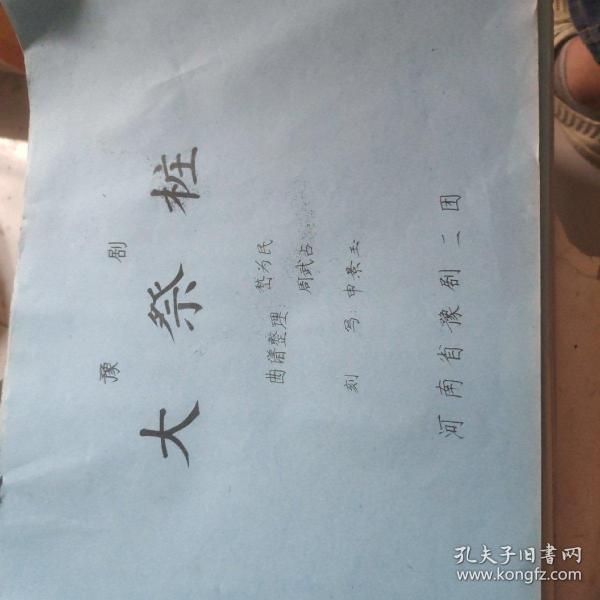 豫剧
大祭桩
曲谱整理：岳为民
周武占
刻写：申景玉
河南省豫剧二团
孔夫子旧書网
www.kongfz.com